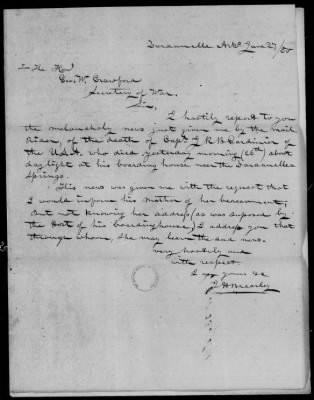 Dardanelle Arks June 27/50
To The Hon
Geo. W. Crawford
Secretary of War.
Sir,
I hastily report to you
the melancholy news just given me by the mail
Rider, of the death of Capt. J R B Gardinier of
the U.S.A. who died yesterday morning (26th) about
daylight at his boarding house near the Dardanelle
Springs.
This news was given me with the request that
I would inform his Mother of her bereavement;
But not knowing her address (as was supposed by
the Host of his boarding house) I address you that
through whom, she may learn the sad news.
Very hastily and
with respect
I am yours &c
J H Brearley